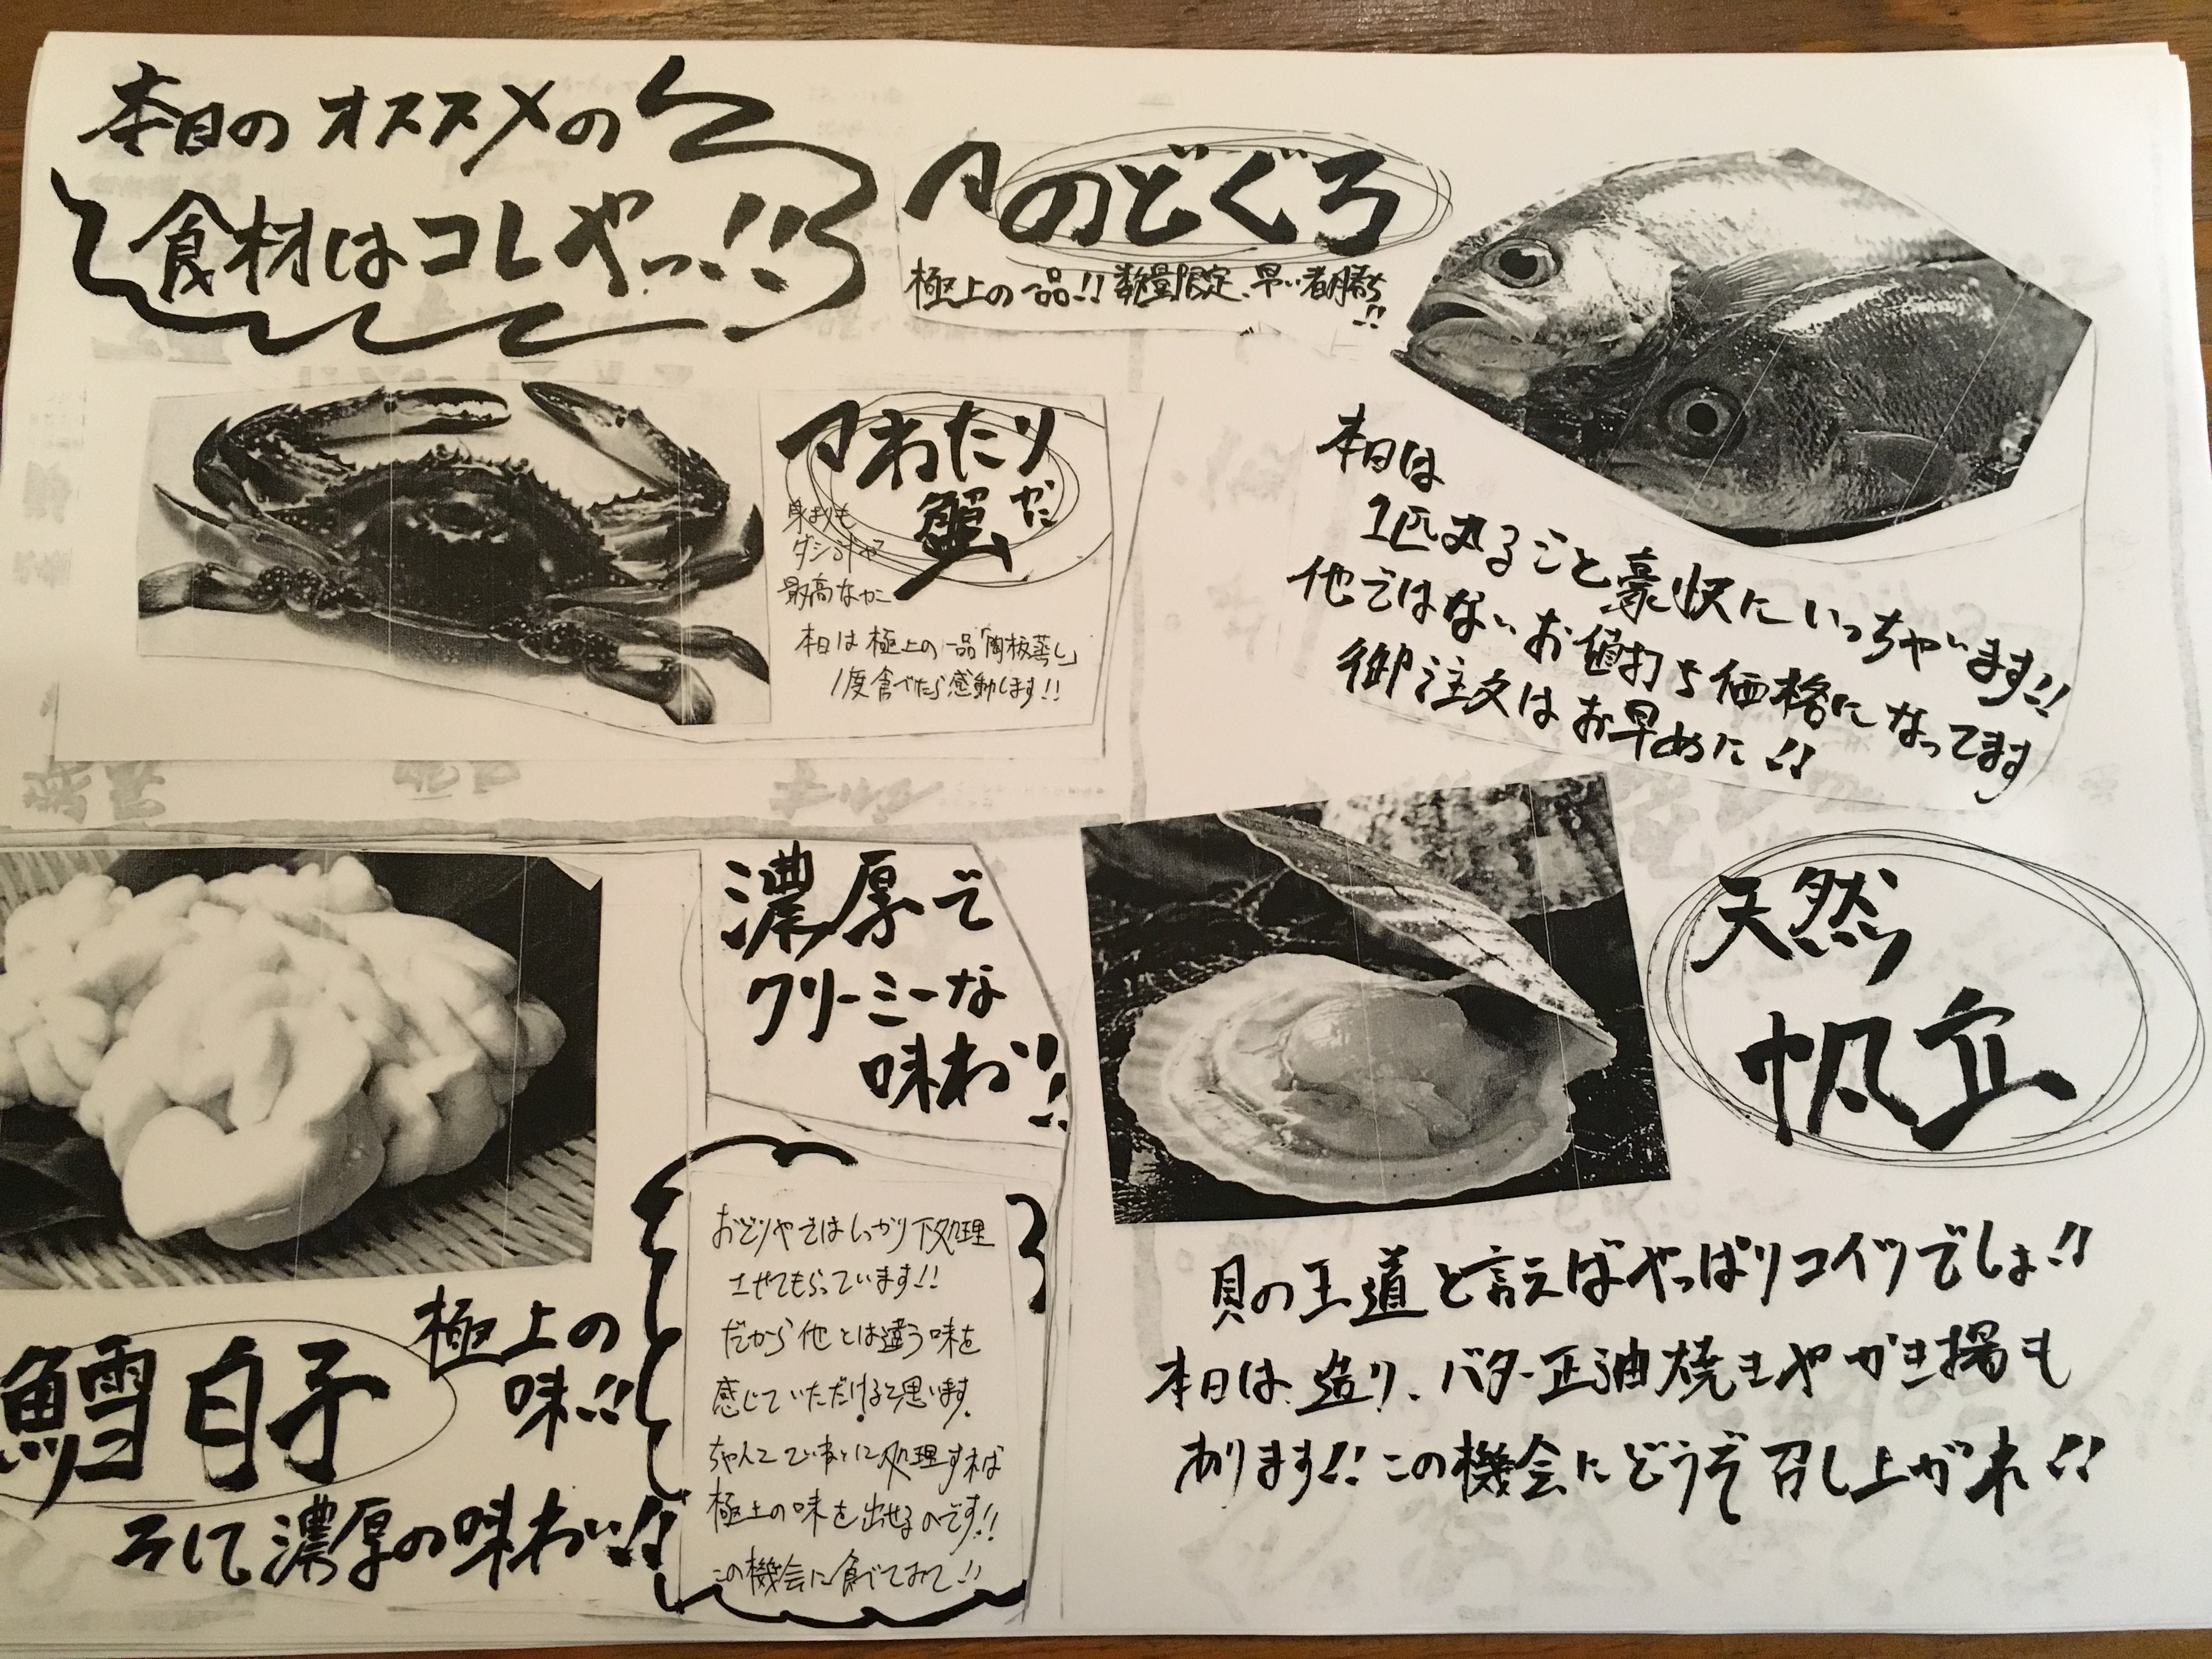 本日のオススメの
食材はコレやっ!!
のどぐろ
極上の一品!! 数量限定、早い者勝ち!!
本日は
1匹丸るごと豪快にいっちゃいます!!
他ではないお値打ち価格になってます
御注文はお早めに!!
わたり
蟹だ
身よりも
ダシ汁が
最高なかに
本日は極上の一品「陶板蒸し」
1度食べたら感動します!!
濃厚で
クリーミーな
味わい!!
鱈白子
極上の
味!!
そして濃厚の味わい!!
おどりやではしっかり下処理
させてもらっています!!
だから他とは違う味を
感じていただけると思います。
ちゃんとていねいに処理すれば
極上の味を出せるのです!!
この機会に食べてみて!!
天然
帆立
貝の王道と言えばやっぱりコイツでしょ!!
本日は、造り、バター正油焼きやかき揚も
あります!! この機会にどうぞ召し上がれ!!